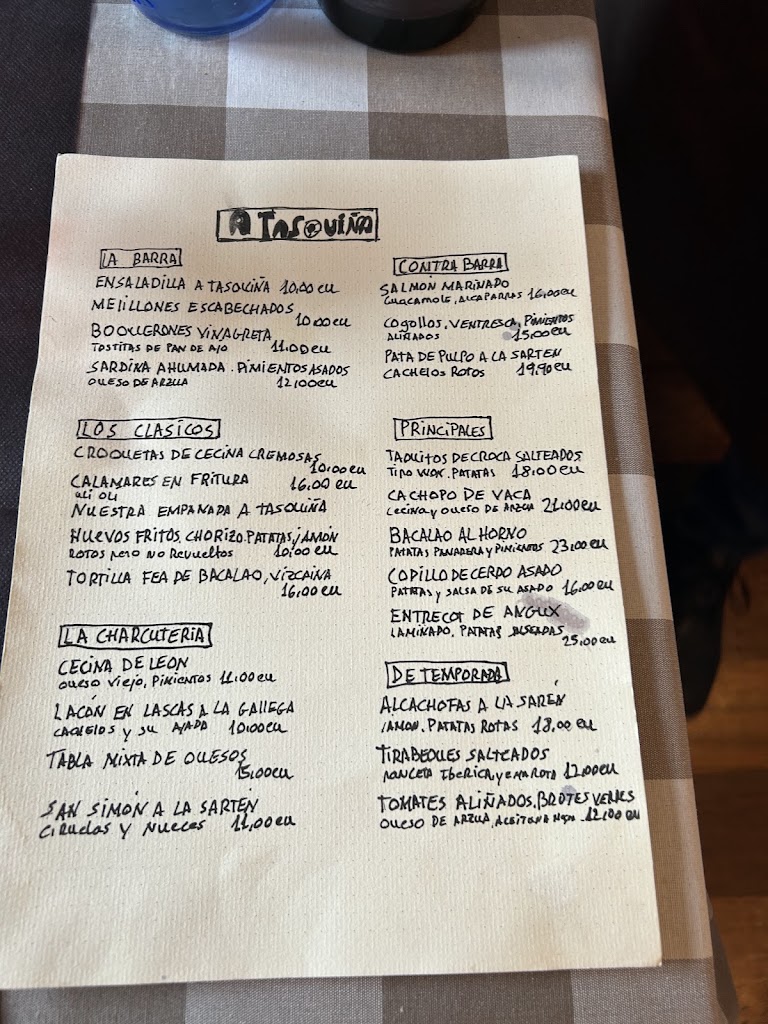 A TASQUIÑA
LA BARRA
ENSALADILLA A TASQUIÑA 10,00 eu
MEJILLONES ESCABECHADOS
10,00 eu
BOQUERONES VINAGRETA
TOSTITAS DE PAN DE AJO 11,00 eu
SARDINA AHUMADA. PIMIENTOS ASADOS
QUESO DE ARZUA 12,00 eu
LOS CLASICOS
CROQUETAS DE CECINA CREMOSAS
10,00 eu
CALAMARES EN FRITURA 16,00 eu
ali oli
NUESTRA EMPANADA A TASQUIÑA
HUEVOS FRITOS, CHORIZO, PATATAS, JAMÓN
ROTOS pero NO Revueltos 10,00 eu
TORTILLA FEA DE BACALAO, VIZCAINA
16,00 eu
LA CHARCUTERIA
CECINA DE LEON
QUESO Viejo, PIMIENTOS 11,00 eu
LACÓN EN LASCAS A LA GALLEGA
CACHELOS y SU AJADA 10,00 eu
TABLA MIXTA DE QUESOS
15,00 eu
SAN SIMÓN A LA SARTÉN
CIRUELAS Y NUECES 11,00 eu
CONTRA BARRA
SALMON MARINADO
GUACAMOLE, ALCAPARRAS 16,00 eu
COGOLLOS, VENTRESCA, PIMIENTOS
ALIÑADOS 15,00 eu
PATA DE PULPO A LA SARTEN
CACHELOS ROTOS 19,90 eu
PRINCIPALES
TAQUITOS DE CROCA SALTEADOS
TIPO WOK. PATATAS 18,00 eu
CACHOPO DE VACA
CECINA y QUESO DE ARZUA 21,00 eu
BACALAO AL HORNO
PATATAS PANADERA y PIMIENTOS 23,00 eu
CODILLO DE CERDO ASADO
PATATAS y SALSA DE SU ASADO 16,00 eu
ENTRECOT DE ANGUX
LAMINADO. PATATAS ASADAS
25,00 eu
DE TEMPORADA
ALCACHOFAS A LA SARÉN
JAMON. PATATAS ROTAS 18,00 eu
TIRABEQUES SALTEADOS
PANCETA IBERICA y 12,00 eu
TOMATES ALIÑADOS. BROTES VERDES
QUESO DE ARZUA, ACEITUNA 12,00 eu